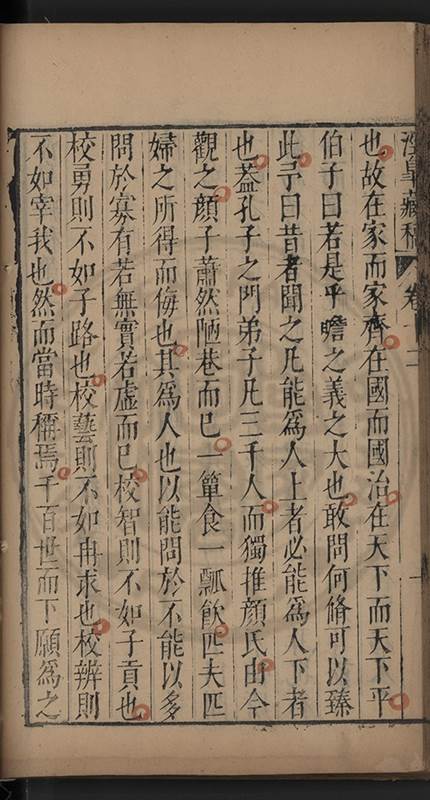 藏稿 卷一 二
也故在家而家齊在國而國治在天下而天下平
伯子曰若是乎瞻之義之大也敢問何脩可以臻
此予曰昔者聞之凡能爲人上者必能爲人下者
也蓋孔子之門弟子凡三千人而獨推顏氏由今
觀之顏子蕭然陋巷而已一簞食一瓢飲匹夫匹
婦之所得而侮也其爲人也以能問於不能以多
問於寡有若無實若虛而已校智則不如子貢也
校勇則不如子路也校藝則不如冉求也校辨則
不如宰我也然而當時稱焉千百世而下願爲之